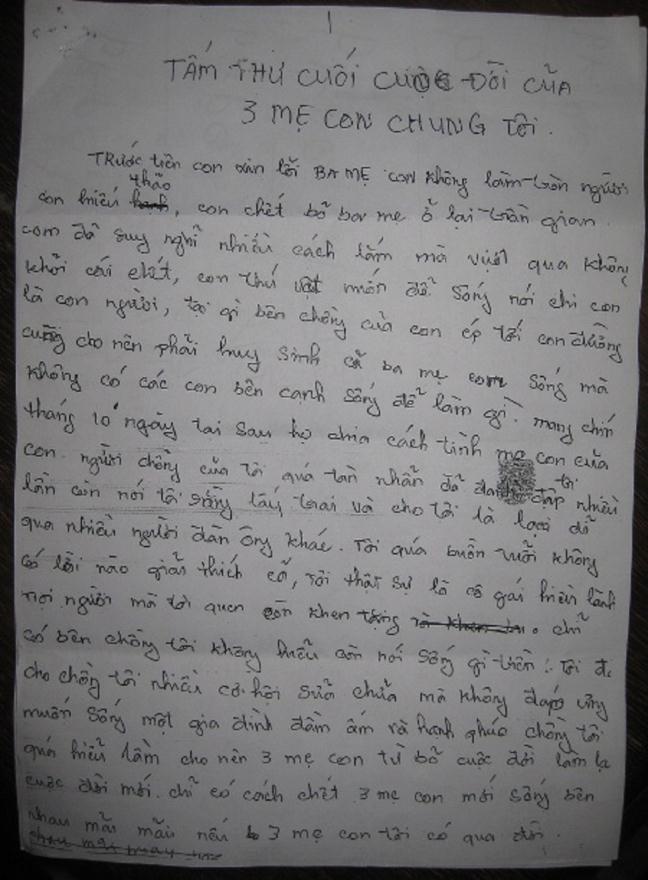 1
TẤM THƯ CUỐI CUỘC ĐỜI CỦA
3 MẸ CON CHUNG TÔI.
TRước tiên con xin lỗi BA MẸ con không làm tròn người
thảo
con hiếu, con chết bỏ ba mẹ ở lại trần gian.
con đã suy nghĩ nhiều cách lắm mà vượt qua không
khỏi cái chết, con thú vật muốn để sống nói chi con
là con người, tại gì bên chồng của con ép tới con đường
cùng cho nên phải huy sinh cả ba mẹ con sống mà
không có các con bên cạnh sống để làm gì. mang chín
tháng 10 ngày tai sau họ chia cách tình mẹ con của
con. người chồng của tôi quá tàn nhẫn đã đánh đập tôi nhiều
lần còn nói tôi rằng lấy trai và cho tôi là loại đỗ
qua nhiều người đàn ông khác. Tôi quá buồn vuỗi không
có lời nào giải thích cả, tôi thật sự là cô gái hiền lành
nơi người mà tôi quen còn khen tặng. chỉ
có bên chồng tôi không hiểu còn nói sống gì tiền! Tôi đã
cho chồng tôi nhiều cơ hội sửa chữa mà không đáp ứng
muốn sống một gia đình đầm ấm và hạnh phúc chồng tôi
quá hiểu lầm cho nên 3 mẹ con từ bỏ cuộc đời làm lạ
cuộc đời mới. chỉ có cách chết 3 mẹ con mới sống bên
nhau mãi mãi nếu 3 mẹ con tôi có qua đời.